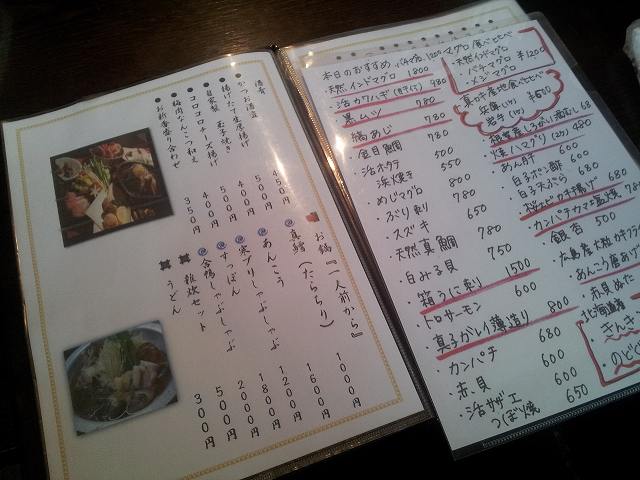 酒肴
●かつお酒盗
●揚げたて生厚揚げ
●自家製 玉子焼き
●コロコロチーズ揚げ
●梅肉なんこつ和え
●お新香盛り合わせ
450円
450円
500円
400円
400円
350円
お鍋『一人前から』
真鱈（たらちり）
あんこう
寒ブリしゃぶしゃぶ
すっぽん
合鴨しゃぶしゃぶ
雑炊セット
うどん
1000円
1600円
1200円
1800円
2000円
500円
300円
本日のおすすめ
・天然インドマグロ 1800
・活カワハギ 980
・黒ムツ 780
・縞あじ 780
・金目鯛 780
・活ホタテ 500
浜焼き 550
・めじマグロ 800
・ぶり刺り 780
・スズキ 650
・天然真鯛 780
・白みる貝 750
・箱うに刺り 1500
・トロサーモン 600
・真子がレイ薄造り 800
・カンパチ 680
・赤貝 600
・活サザエ 600
つぼ焼 650
マグロ食べ比べ
・天然インドマグロ
・バチマグロ ¥1200
・メジマグロ
真ガキ産地食べ比べ
兵庫(1ケ)
岩手(1ケ) ¥600
・焼ハマグリ(2ケ) 480
・あん肝 600
・白子ポン酢 600
・白子天ぷら 680
・カンパチカマ塩焼 780
・銀杏 500
・広島産大粒カキフライ
・あんこう唐あげ
・赤貝ぬた
北海道産
・きんき
・のどぐ